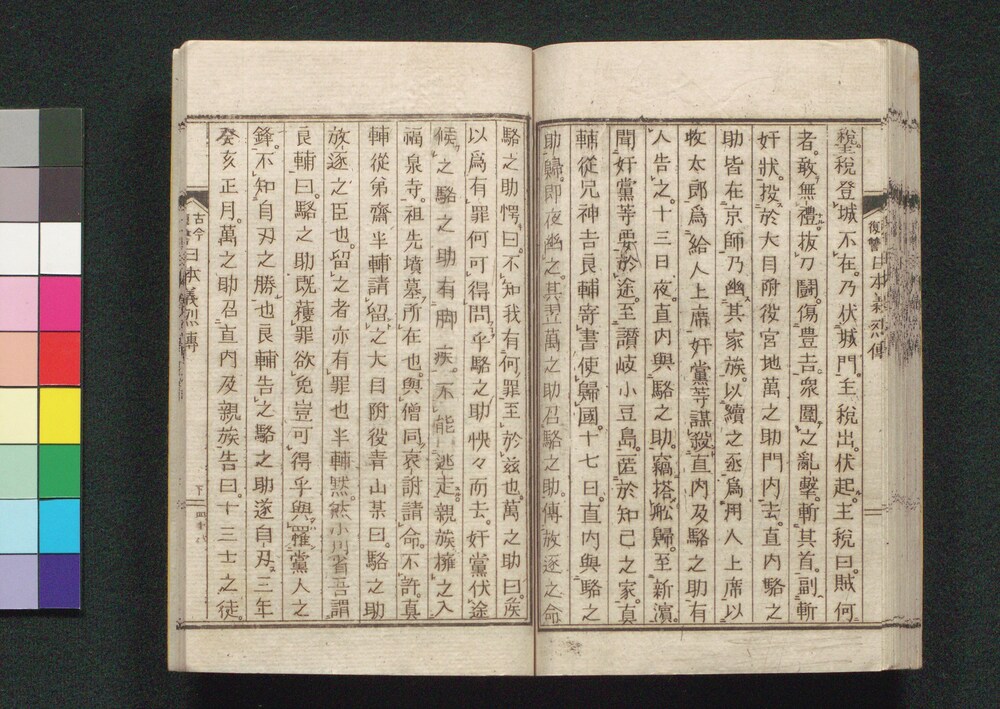 稅登城不在乃伏城門主稅出伏起主稅曰賊何
者敢無禮拔刀闘傷豊吉衆圍之亂擊斬其首副斬
奸狀投於大目附役宮地萬之助門內去直內駱之
助皆在京師乃幽其家族以續之丞爲用人上席以
牧太郎爲給人上席奸黨等謀殺直內及駱之助有
人告之十三日夜直內與駱之助竊搭舩歸至新濵
聞奸黨等要於途至讃岐小豆島匿於知己之家眞
輔從兄神吉良輔寄書使歸國十七日直內與駱之
助歸即夜幽之其翌萬之助召駱之助傳放逐之命
駱之助愕曰不知我有何罪至於玆也萬之助曰
以爲有罪何可得問乎駱之助怏々而去奸黨伏途
候之駱之助有脚疾不能逃走親族擁之入
福泉寺祖先墳墓所在也與僧同哀訴請命不許眞
輔從弟齋半輔請留之大目附役靑山某曰駱之助
放逐之臣也留之者亦有罪也半輔默然小川省吾謂
良輔曰駱之助既罪欲免豈可得乎與罹黨人之
鋒不知自刃之勝也良輔告之駱之助遂自刃三年
癸亥正月萬之助召直內及親族告曰十三士之徒
復讐日本義烈傳
古今
日本義烈傳
下